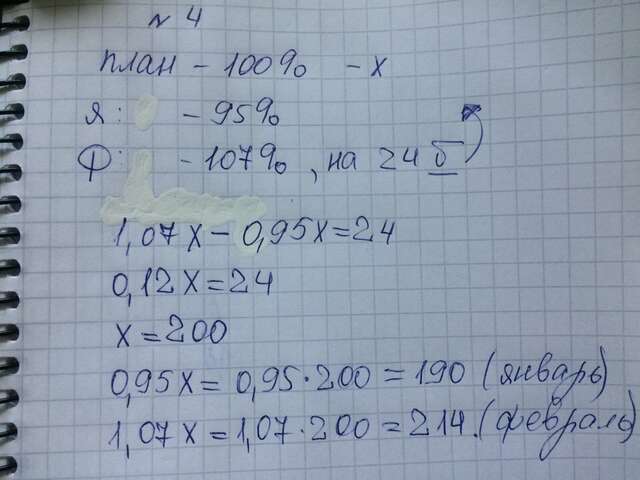 № 4
план - 100% - х
Я: - 95%
Ф: - 107%, на 24 б
1,07х - 0,95х = 24
0,12х = 24
х = 200
0,95х = 0,95 · 200 = 190 (январь)
1,07х = 1,07 · 200 = 214. (февраль)